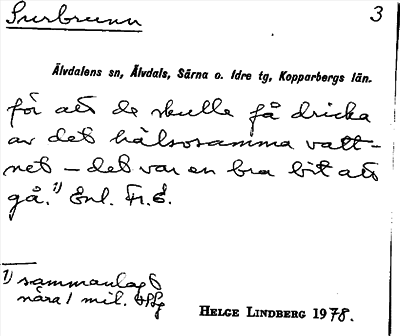 Surbrunn 3
Älvdalens sn, Älvdals, Särna o. Idre tg, Kopparbergs län.
för att de skulle få dricka
av det hälsosamma vatt-
net – det var en bra bit att
gå.¹) Enl. Fr. E.
¹) sammanlagt
nära 1 mil.
HELGE LINDBERG 1978.